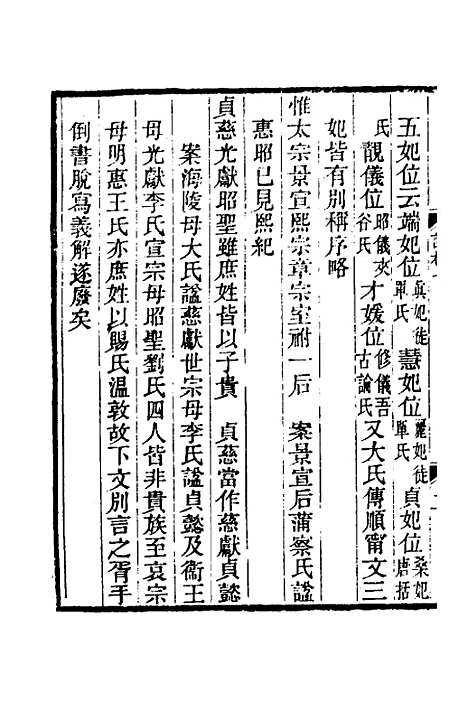 五妃位云端妃位真妃徒單氏慧妃位麗妃徒單氏貞妃位柔妃唐括
氏覩儀位昭儀夾谷氏才媛位修儀吾古論氏又大氏傳順甯文三
妃皆有別稱序略
惟太宗景宣熙宗章宗室祔一后　案景宣后蒲察氏諡
惠昭已見熙紀
貞慈光獻昭聖雖庶姓皆以子貴　貞慈當作慈獻貞懿
案海陵母大氏諡慈獻世宗母李氏諡貞懿及衞王
母光獻李氏宣宗母昭聖劉氏四人皆非貴族至哀宗
母明惠王氏亦庶姓以賜氏温敦故下文別言之胥手
倒書脫寫義解遂廢矣